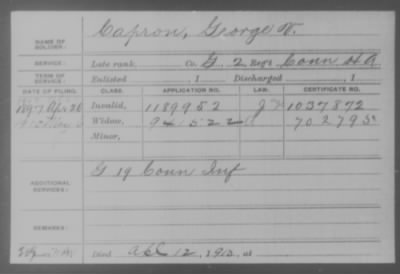 NAME OF SOLDIER: Capron, George W.
SERVICE: Late rank, Co. G, 2 Reg't Conn H A
TERM OF SERVICE: Enlisted , 1 Discharged , 1
DATE OF FILING. CLASS. APPLICATION NO. LAW. CERTIFICATE NO.
1897 Apr 26 Invalid, 1189952 1037872
1910 May Widow, 941522 702795
Minor,
ADDITIONAL SERVICES: G 19 Conn Inf
REMARKS:
Died Apl 12, 1910, at